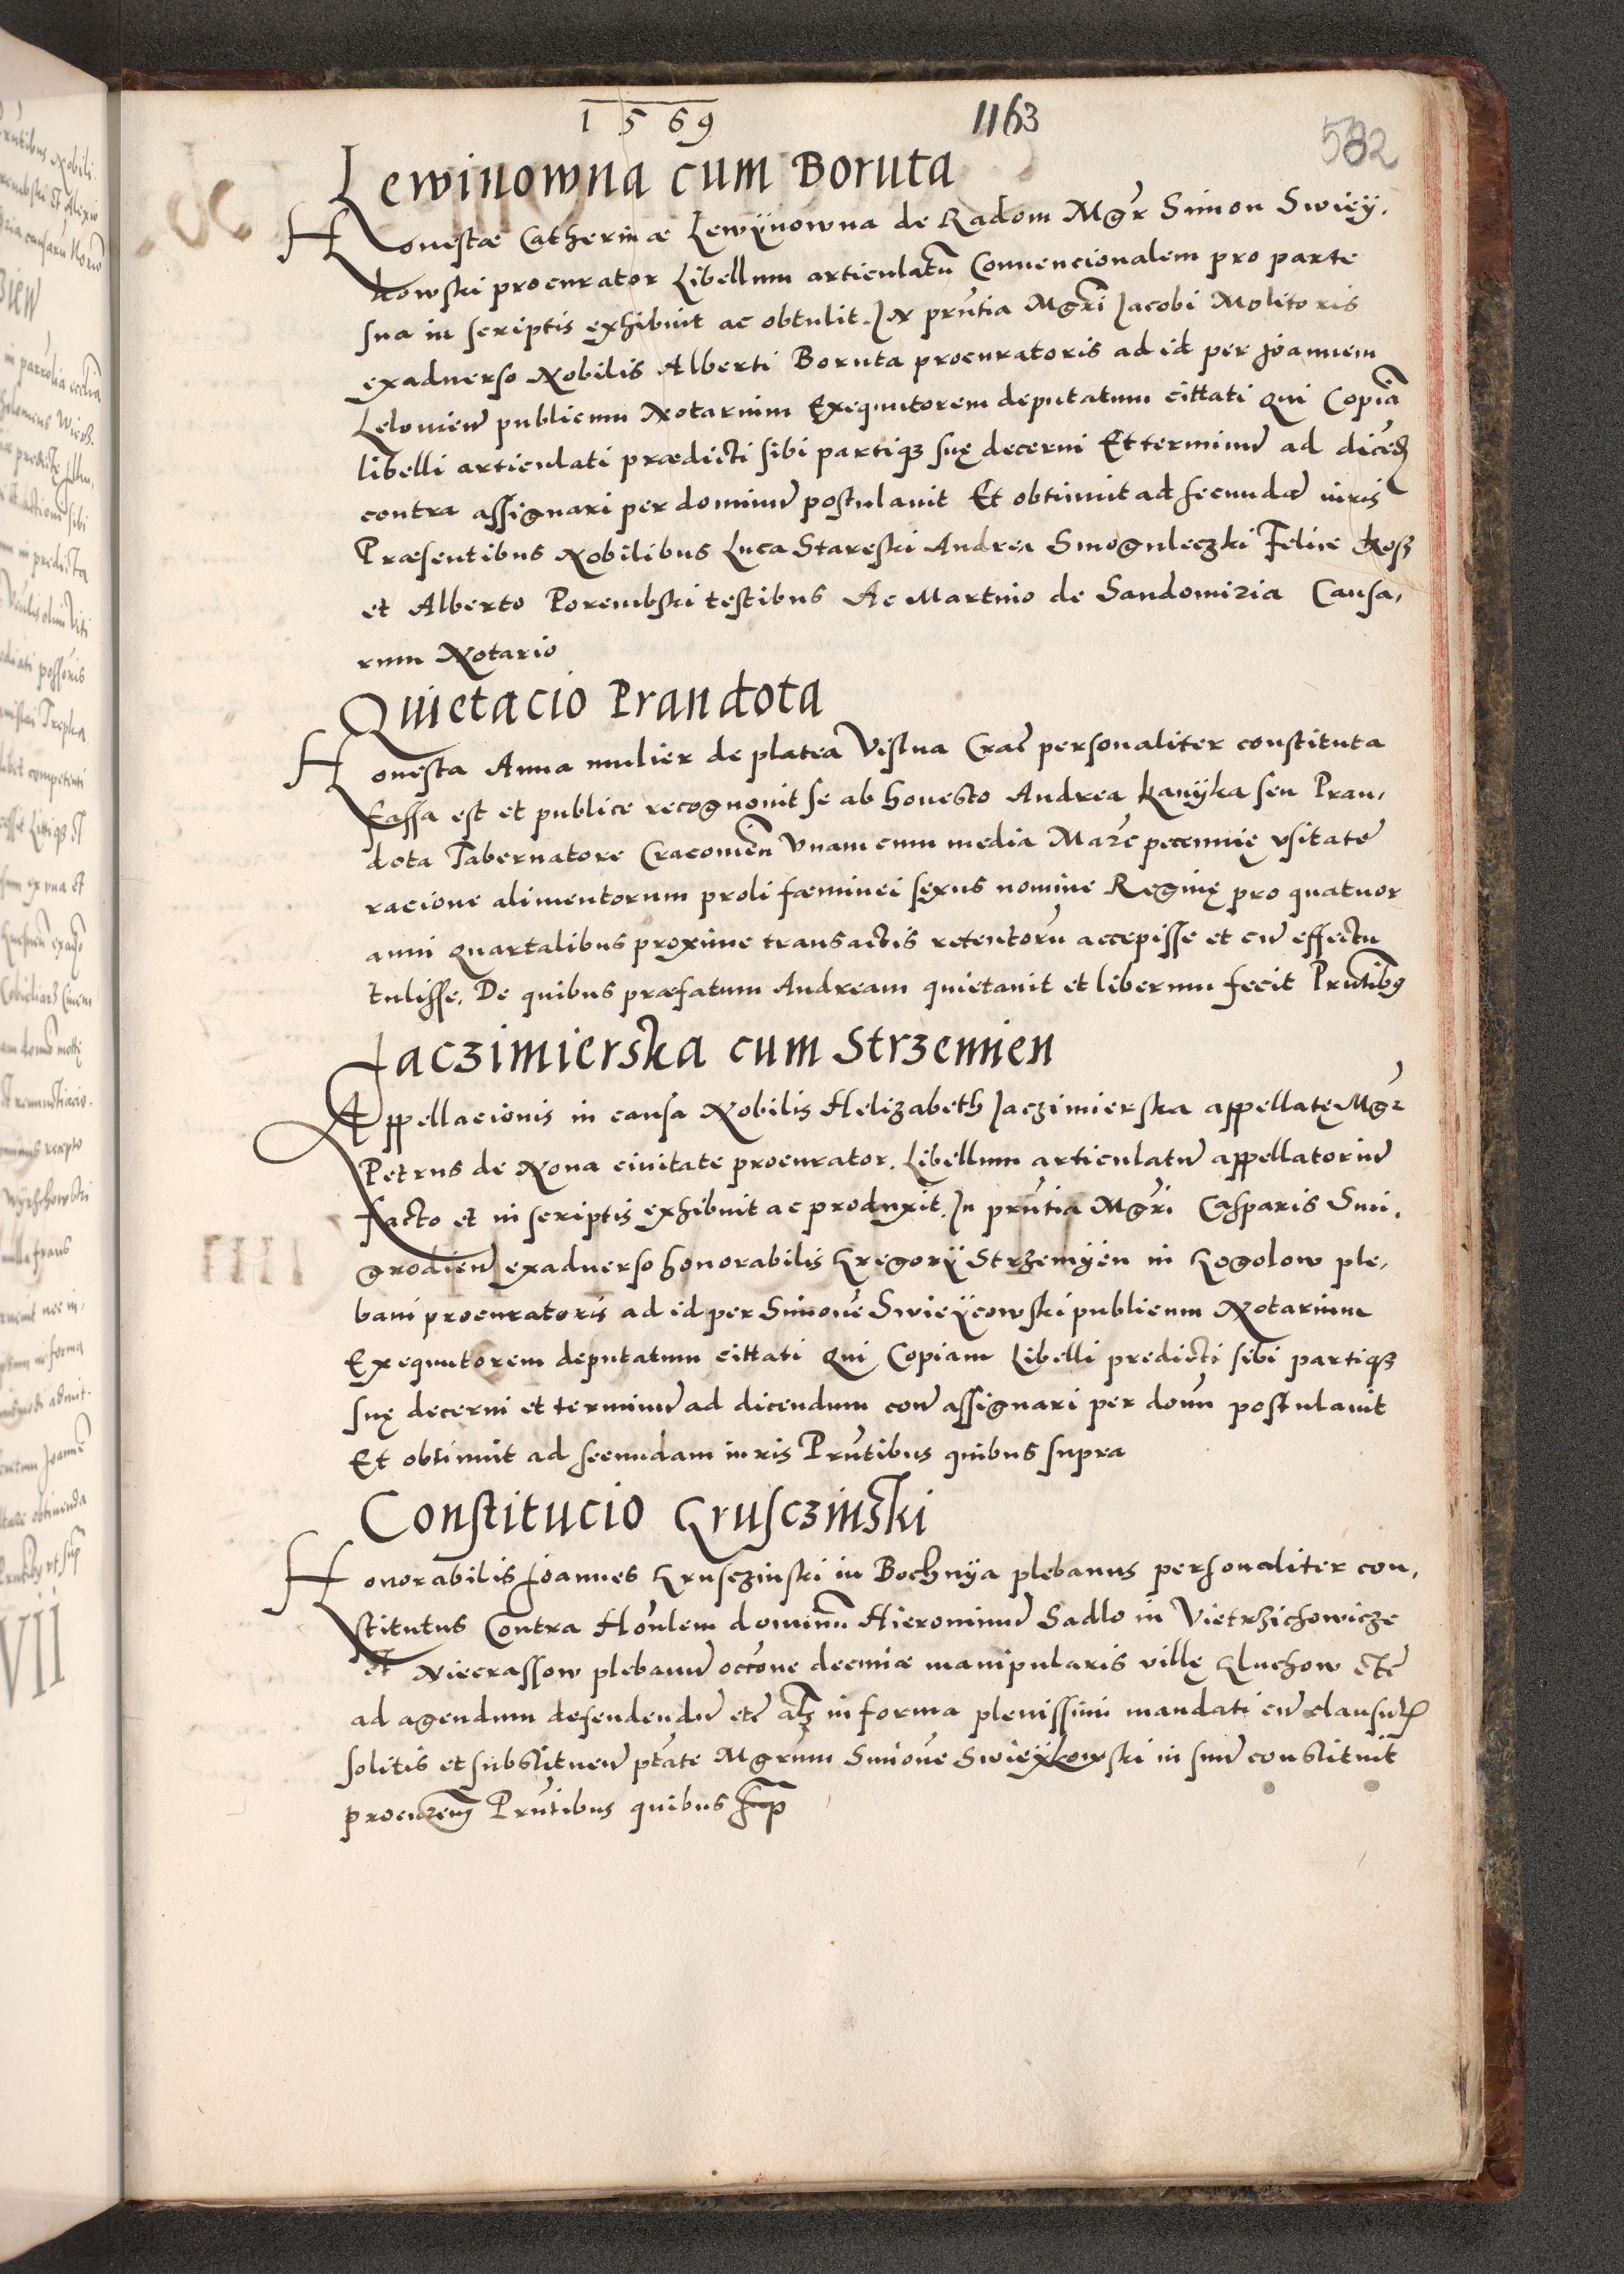 1569
1163
582
Lewinowna cum Boruta
Honestæ Catherinæ Lewÿnowna de Radom Mgr̃ Simon Swieÿ,
kowski procurator Libellum articulatũ Conuencionalem pro parte
sua in scriptis exhibuit ac obtulit. In prñtia Mgr̃i Jacobi Molitoris
exaduerso Nobilis Alberti Boruta procuratoris ad id per Joannem
Lelouien̄ publicum Notarium Exequutorem deputatum cittati Qui Copiã
libelli articulati prædicti sibi partiqꝫ suę decerni Et terminũ ad dicẽd
contra assignari per dominũ postulauit Et obtinuit ad secundã iuris
Præsentibus Nobilibus Luca Stareski Andrea Smoguleczki Felice Kosz
et Alberto Porembski testibus Ac Martino de Sandomiria Causa,
rum Notario
Quietacio Prandota
Honesta Anna mulier de platea Vislna Crac̃ personaliter constituta
fassa est et publice recognouit se ab honesto Andrea Kanÿka seu Pran,
dota Tabernatore Cracouień Vnam cum media Marc̃ pecunię vsitate
racione alimentorum proli fæminei sexus nomine Reginę pro quatuor
anni quartalibus proxime transactis retentorũ accepisse et cũ effectu
tulisse. De quibus præfatum Andream quietauit et liberum fecit Prñtibꝰ
Jaczimierska cum Strzemien
Appellacionis in causa Nobilis Helizabeth Jaczimierska appellatę Mgr̃
Petrus de Noua ciuitate procurator. Libellum articulatũ appellatoriũ
facto et in scriptis exhibuit ac produxit. In prñtia Mgr̃i Casparis Smi,
grodien̄ exaduerso honorabilis Gregorÿ Strzemÿen in Gogolow ple,
bani procuratoris ad id per Simonẽ Swieÿcowski publicum Notarium
Exequutorem deputatum cittati Qui Copiam Libelli predicti sibi partiqꝫ
suę decerni et terminũ ad dicendum con̄ assignari per domũ postulauit
Et obtinuit ad secundam iuris Prñtibus quibus supra
Constitucio Gruscziński
Honorabilis Joannes Grusczinski in Bochnÿa plebanus personaliter con,
stitutus Contra Honlem dominũ Hieronimũ Sadlo in Vietrzichowicze
et Niecrassow plebanũ occõne decimæ manipularis villę Gluchow etc̃
ad agendum defendendũ etc̃ alꝫ in forma plenissimi mandati cũ clausul
solitis et substituen̄ ptãte Mgrum Simonẽ Swieÿkowski in suũ constituit
procurem Prñtibus quibus sup